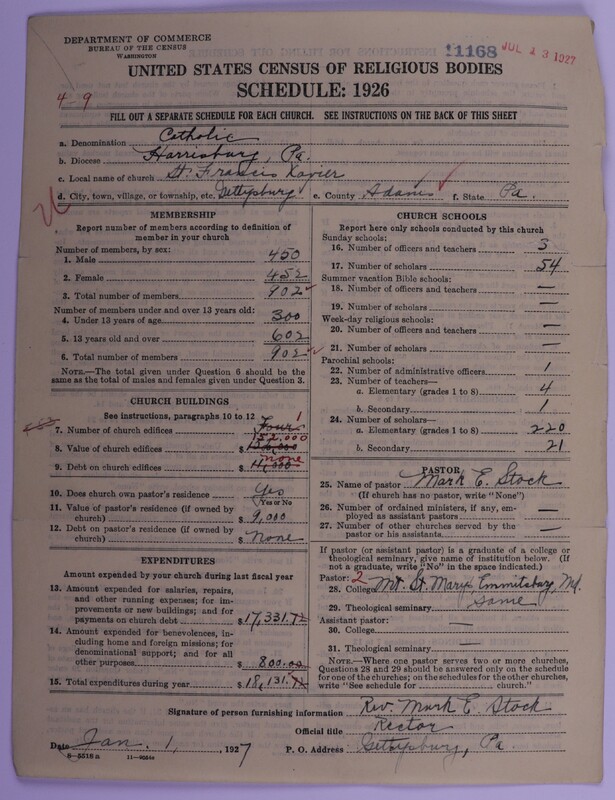 DEPARTMENT OF COMMERCE
BUREAU OF THE CENSUS
WASHINGTON
11168 JUL 13 1927
UNITED STATES CENSUS OF RELIGIOUS BODIES
SCHEDULE: 1926
4-9
FILL OUT A SEPARATE SCHEDULE FOR EACH CHURCH. SEE INSTRUCTIONS ON THE BACK OF THIS SHEET
a. Denomination Catholic
b. Diocese Harrisburg, Pa.
c. Local name of church St. Francis Xavier
d. City, town, village, or township, etc. Gettysburg e. County Adams f. State Pa.
MEMBERSHIP
Report number of members according to definition of member in your church
Number of members, by sex:
1. Male 450
2. Female 452
3. Total number of members 902
Number of members under and over 13 years old:
4. Under 13 years of age 300
5. 13 years old and over 602
6. Total number of members 902
NOTE.—The total given under Question 6 should be the same as the total of males and females given under Question 3.
CHURCH BUILDINGS
See instructions, paragraphs 10 to 12 1
7. Number of church edifices Four
152,000
8. Value of church edifices $
none
9. Debt on church edifices $ 11,000
10. Does church own pastor's residence Yes
(Yes or No)
11. Value of pastor's residence (if owned by church) $ 9,000
12. Debt on pastor's residence (if owned by church) $ None
EXPENDITURES
Amount expended by your church during last fiscal year
13. Amount expended for salaries, repairs,
and other running expenses; for improvements or new buildings; and for
payments on church debt $ 17,331.72
14. Amount expended for benevolences, including home and foreign missions; for
denominational support; and for all
other purposes $ 800.00
15. Total expenditures during year $ 18,131.72
CHURCH SCHOOLS
Report here only schools conducted by this church
Sunday schools:
16. Number of officers and teachers 3
17. Number of scholars 54
Summer vacation Bible schools:
18. Number of officers and teachers —
19. Number of scholars —
Week-day religious schools:
20. Number of officers and teachers —
21. Number of scholars —
Parochial schools:
22. Number of administrative officers 1
23. Number of teachers—
a. Elementary (grades 1 to 8) 4
b. Secondary 1
24. Number of scholars—
a. Elementary (grades 1 to 8) 220
b. Secondary 21
PASTOR
25. Name of pastor Mark E. Stock
(If church has no pastor, write "None")
26. Number of ordained ministers, if any, employed as assistant pastors —
27. Number of other churches served by the pastor or his assistants —
If pastor (or assistant pastor) is a graduate of a college or
theological seminary, give name of institution below. (If
not a graduate, write "No" in the space indicated.)
Pastor: 2
28. College Mt. St. Marys, Emmitsburg, Md.
29. Theological seminary Same
Assistant pastor:
30. College —
31. Theological seminary —
NOTE.—Where one pastor serves two or more churches,
Questions 28 and 29 should be answered only on the schedule
for one of the churches; on the schedules for the other churches,
write "See schedule for church."
Signature of person furnishing information Rev. Mark E. Stock
Official title Rector
Date Jan. 1, 1927 P. O. Address Gettysburg, Pa.
8—5516 a 11—9664a